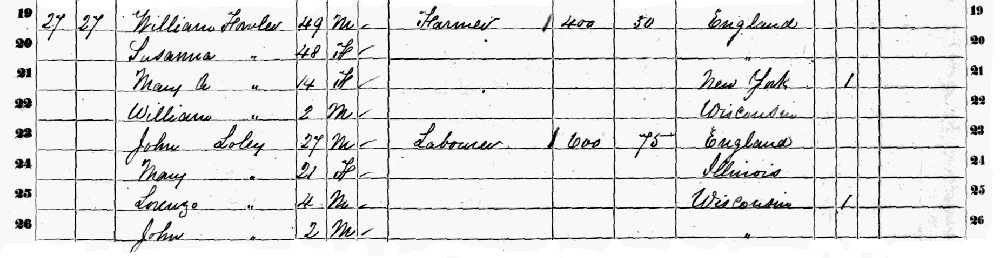 19 27 27 William Fowler 49 M Farmer 1400 50 England 19
20 Susanna " 48 F " 20
21 Mary A " 14 F New York 1 21
22 William " 2 M Wisconsin 22
23 John Loley 27 M Labourer 1600 75 England 23
24 Mary " 21 F Illinois 24
25 Lorenzo " 4 M Wisconsin 1 25
26 John " 2 M " 26